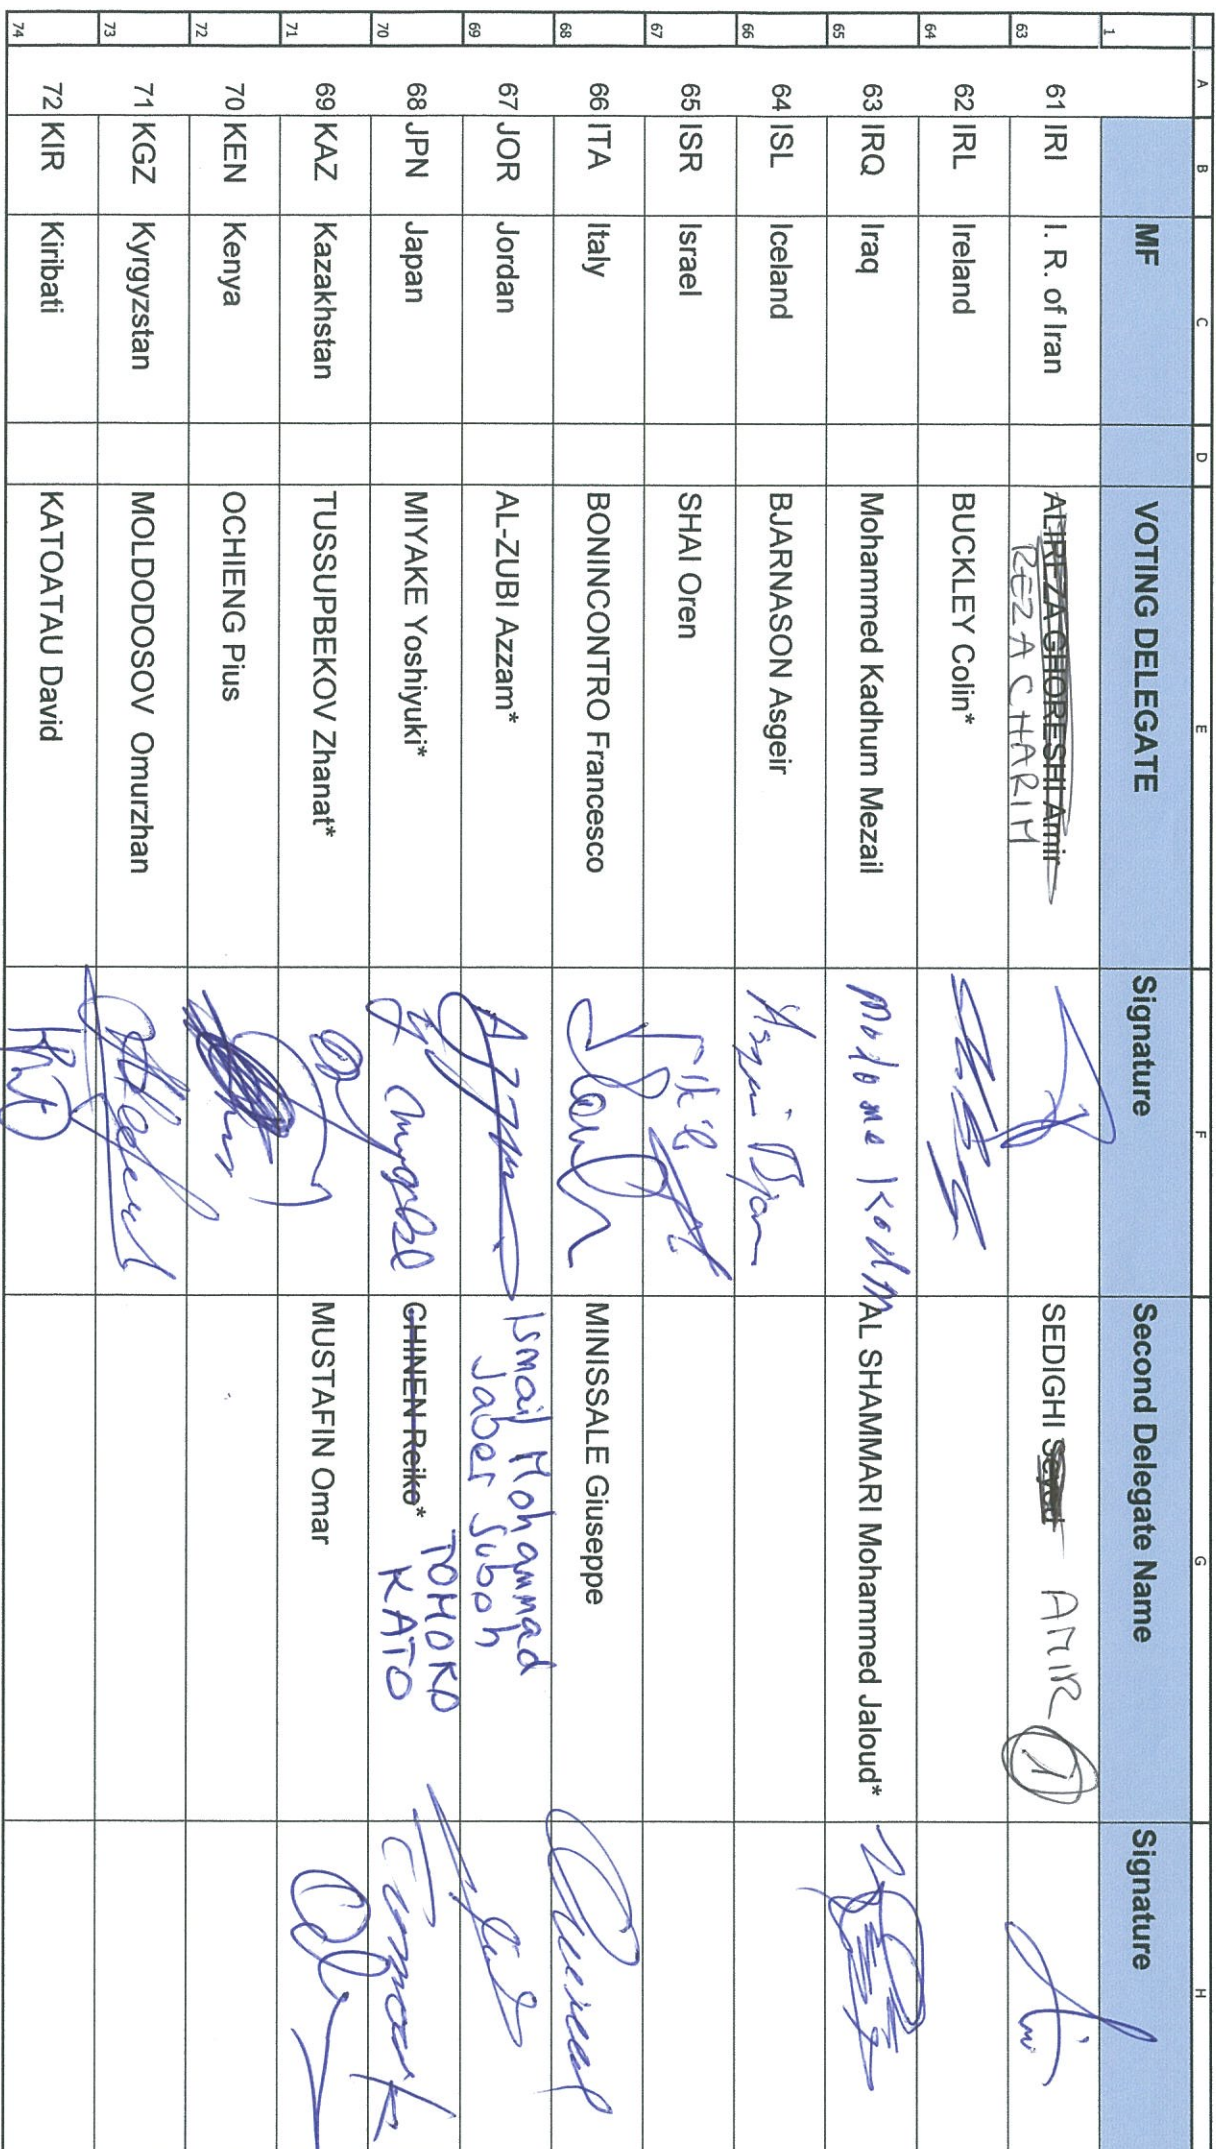 A B C D E F G H
1 MF VOTING DELEGATE Signature Second Delegate Name Signature
63 61 IRI I. R. of Iran ALIREZA GHORESHI Amir SEDIGHI Seyed AMIR 1
REZA CHARIM
64 62 IRL Ireland BUCKLEY Colin*
65 63 IRQ Iraq Mohammed Kadhum Mezail AL SHAMMARI Mohammed Jaloud*
66 64 ISL Iceland BJARNASON Asgeir
67 65 ISR Israel SHAI Oren
68 66 ITA Italy BONINCONTRO Francesco MINISSALE Giuseppe
69 67 JOR Jordan AL-ZUBI Azzam* Ismail Mohammad
Jaber Suboh
70 68 JPN Japan MIYAKE Yoshiyuki* CHINEN Reiko* TOMOKO
KATO
71 69 KAZ Kazakhstan TUSSUPBEKOV Zhanat* MUSTAFIN Omar
72 70 KEN Kenya OCHIENG Pius
73 71 KGZ Kyrgyzstan MOLDODOSOV Omurzhan
74 72 KIR Kiribati KATOATAU David